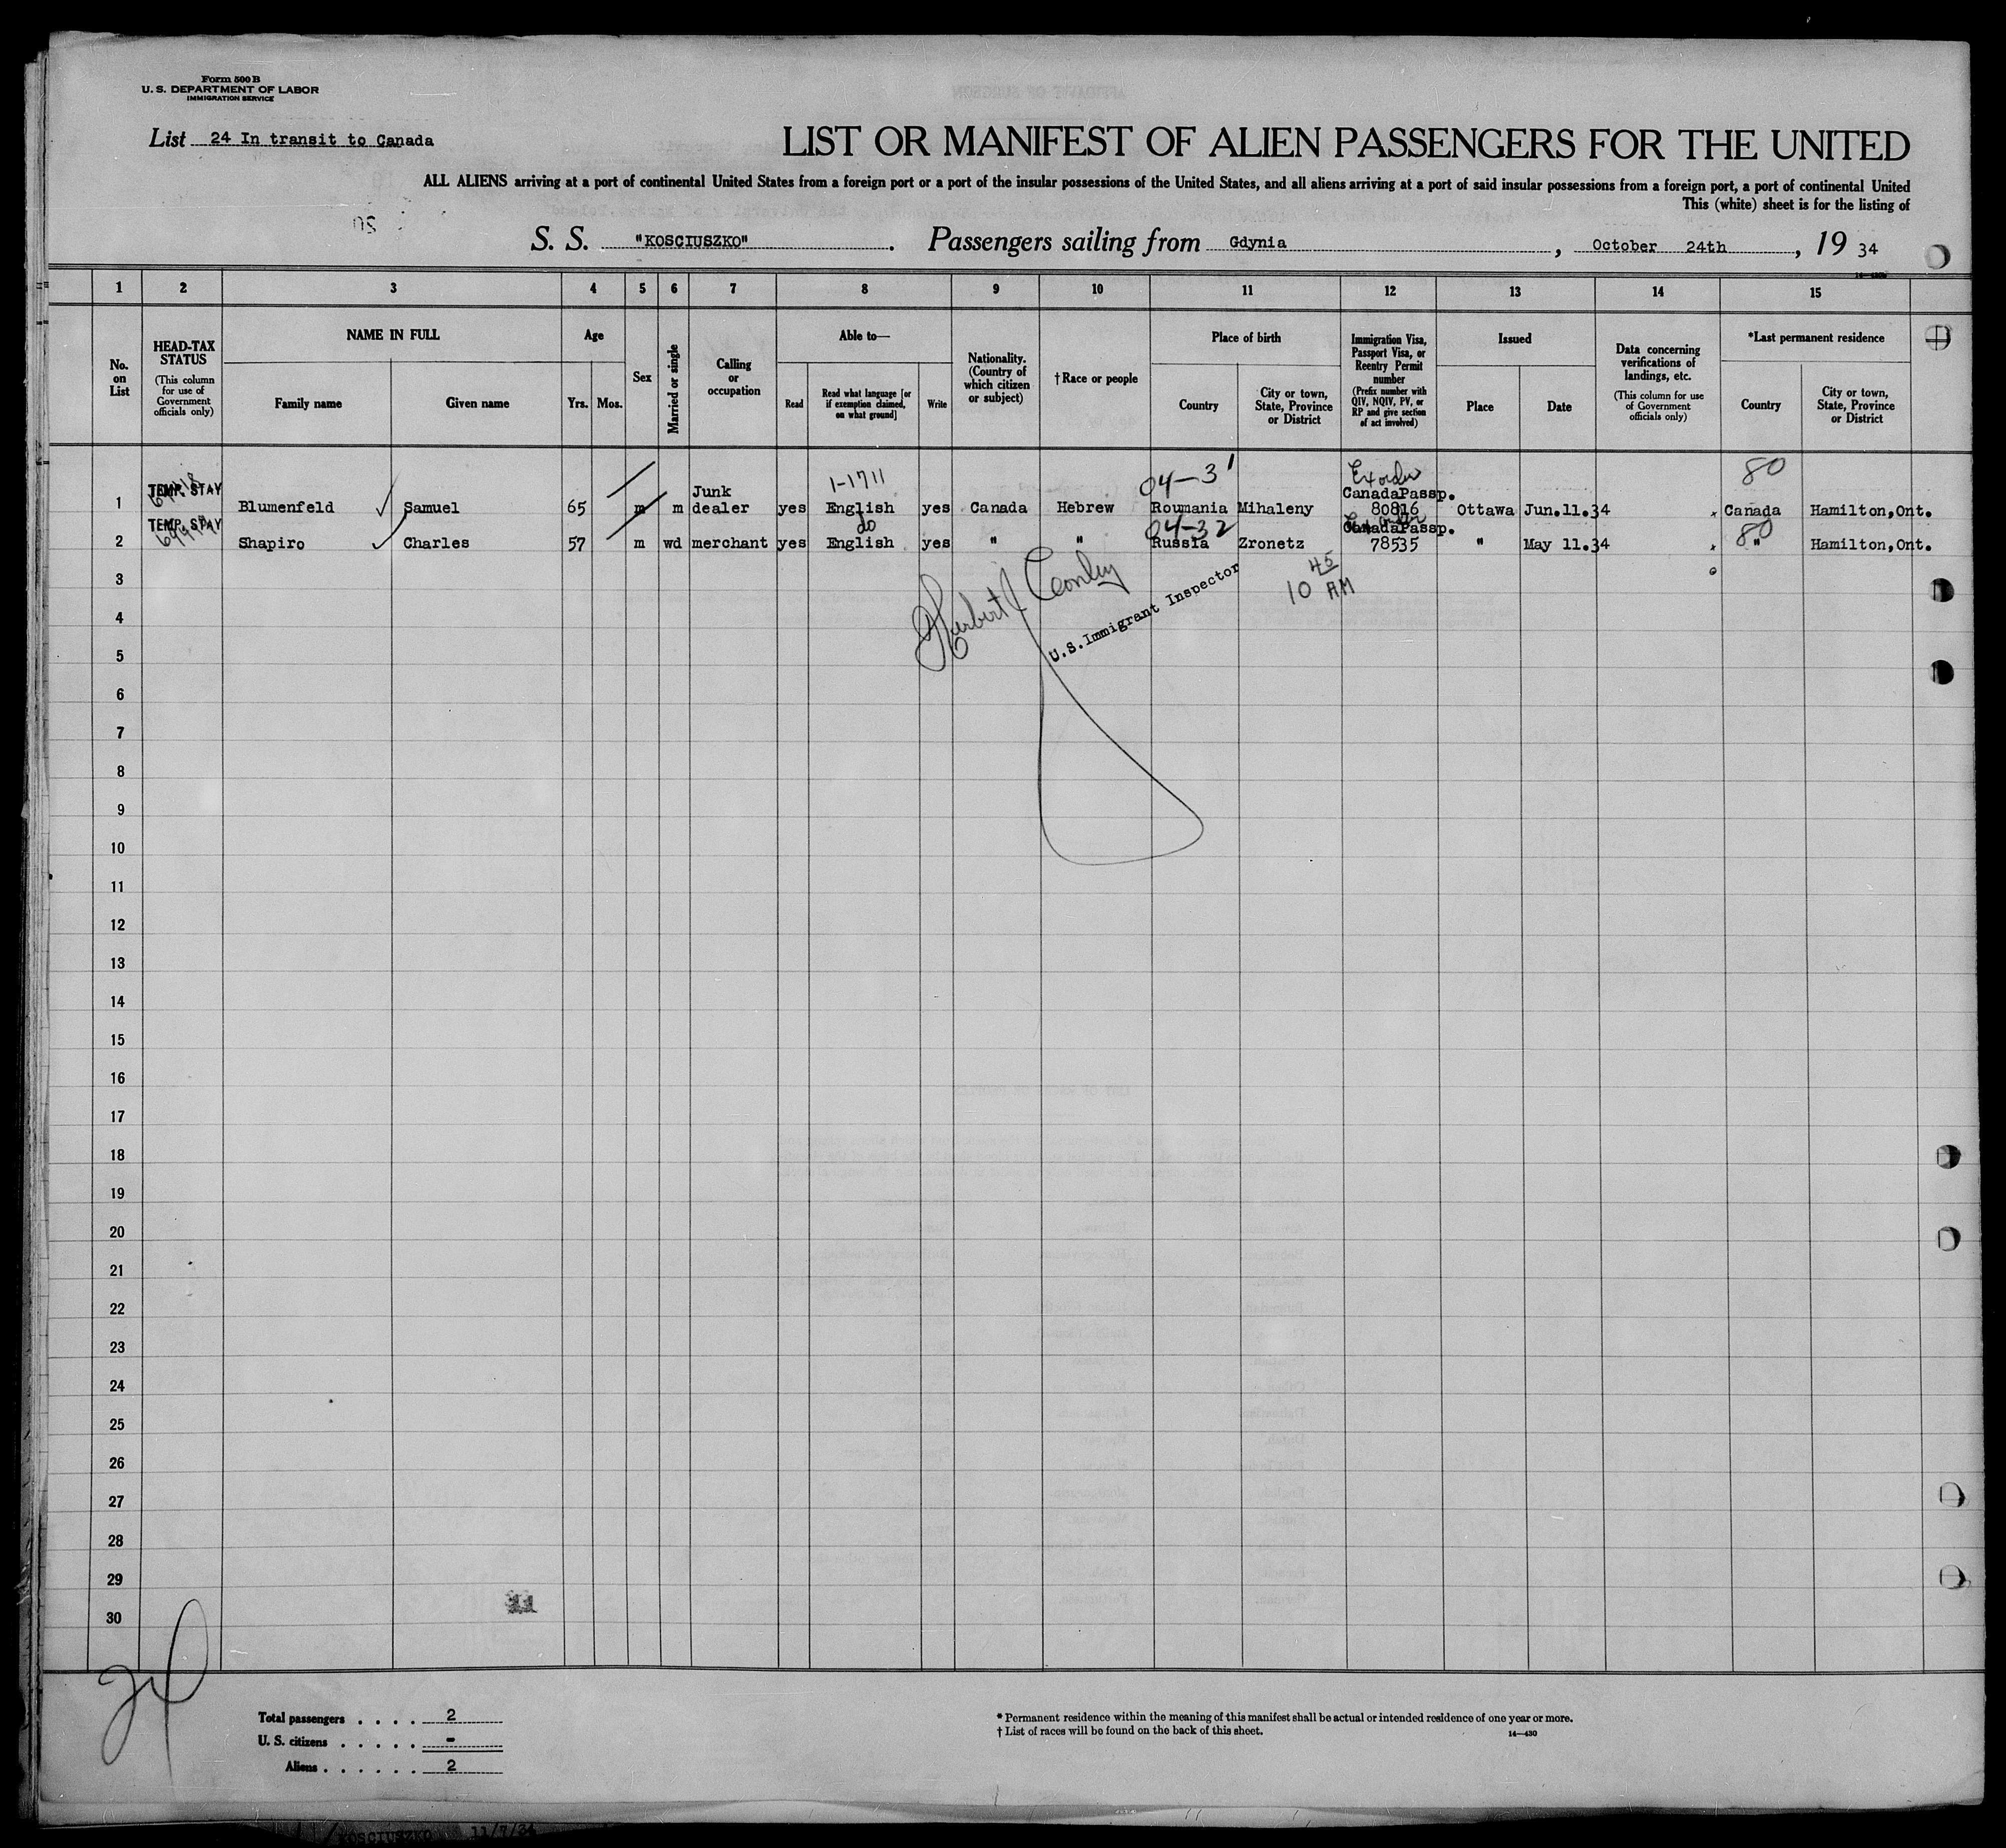 Form 500 B
U. S. DEPARTMENT OF LABOR
IMMIGRATION SERVICE
List 24 In transit to Canada
LIST OR MANIFEST OF ALIEN PASSENGERS FOR THE UNITED
ALL ALIENS arriving at a port of continental United States from a foreign port or a port of the insular possessions of the United States, and all aliens arriving at a port of said insular possessions from a foreign port, a port of continental United
This (white) sheet is for the listing of
S. S. "KOSCIUSZKO". Passengers sailing from Gdynia, October 24th, 19 34
1 2 3 4 5 6 7 8 9 10 11 12 13 14 15
No. on List
HEAD-TAX STATUS
(This column for use of Government officials only)
NAME IN FULL
Family name
Given name
Age
Yrs. Mos.
Sex
Married or single
Calling or occupation
Able to—
Read
Read what language [or if exemption claimed, on what ground]
Write
Nationality. (Country of which citizen or subject)
†Race or people
Place of birth
Country
City or town, State, Province or District
Immigration Visa, Passport Visa, or Reentry Permit number
(Prefix number with QIV, NQIV, PV, or RP and give section of act involved)
Issued
Place
Date
Data concerning verifications of landings, etc.
(This column for use of Government officials only)
*Last permanent residence
Country
City or town, State, Province or District
1-1711
04-31
Ex order
80
TEMP. STAY
Junk
CanadaPassp.
1 Blumenfeld Samuel 65 m m dealer yes English yes Canada Hebrew Roumania Mihaleny 80816 Ottawa Jun.11.34 Canada Hamilton,Ont.
TEMP. STAY
do
04-32
Ex order
CanadaPassp.
80
2 Shapiro Charles 57 m wd merchant yes English yes " " Russia Zronetz 78535 " May 11.34 " Hamilton,Ont.
Herbert J Conley
U.S.Immigrant Inspector
10 45 AM
3
4
5
6
7
8
9
10
11
12
13
14
15
16
17
18
19
20
21
22
23
24
25
26
27
28
29
30
24
Total passengers . . . . 2
U. S. citizens . . . . . -
Aliens . . . . . . 2
* Permanent residence within the meaning of this manifest shall be actual or intended residence of one year or more.
† List of races will be found on the back of this sheet.
14—430
KOSCIUSZKO 11/7/34